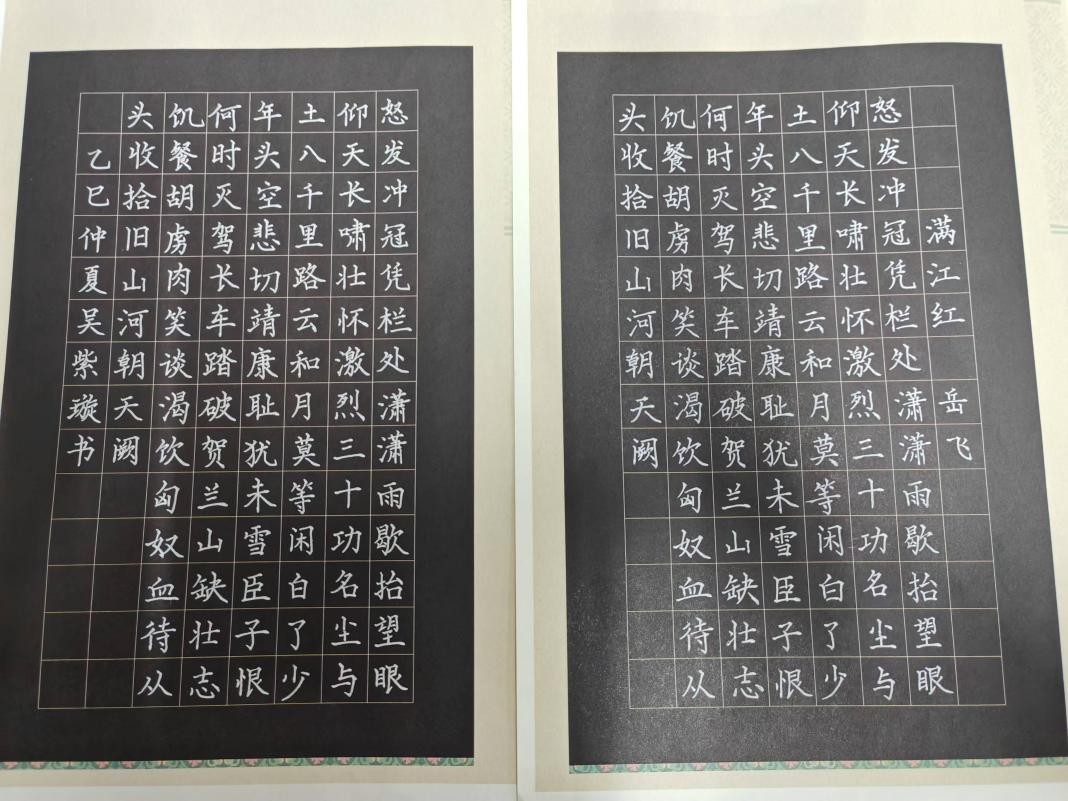 怒发冲冠凭栏处潇潇雨歇抬望眼
仰天长啸壮怀激烈三十功名尘与
土八千里路云和月莫等闲白了少
年头空悲切靖康耻犹未雪臣子恨
何时灭驾长车踏破贺兰山缺壮志
饥餐胡虏肉笑谈渴饮匈奴血待从
头收拾旧山河朝天阙
乙巳仲夏吴紫璇书
满江红 岳飞
怒发冲冠凭栏处潇潇雨歇抬望眼
仰天长啸壮怀激烈三十功名尘与
土八千里路云和月莫等闲白了少
年头空悲切靖康耻犹未雪臣子恨
何时灭驾长车踏破贺兰山缺壮志
饥餐胡虏肉笑谈渴饮匈奴血待从
头收拾旧山河朝天阙